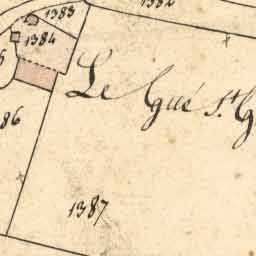 1382
1383
1384
5
Le Gué S.t G
86
1387